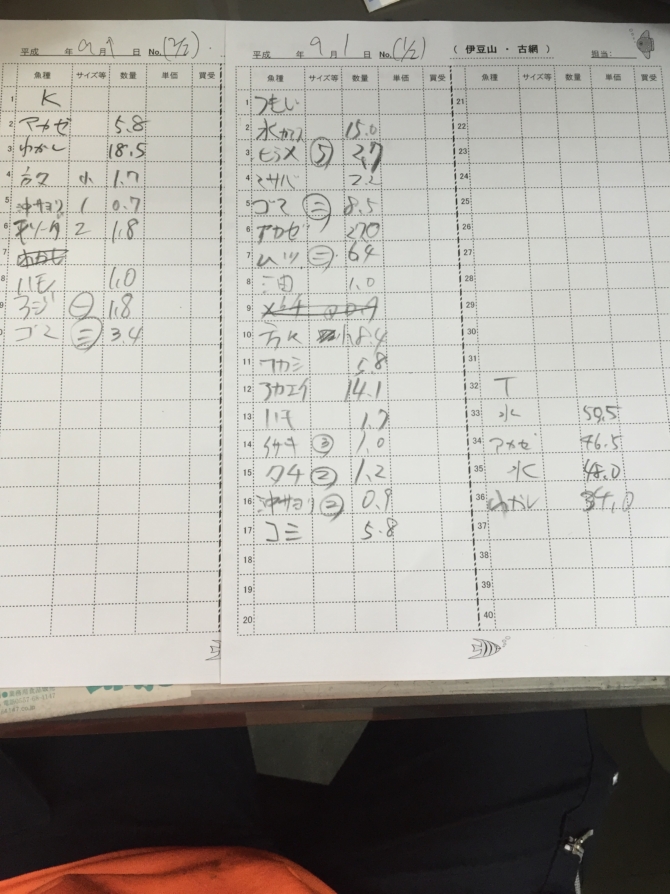 平成 年 9月 1日 No.(2/2)
魚種 サイズ等 数量 単価 買受
1 K
2 アカゼ 5.8
3 わかし 18.5
4 方タ 小 1.7
5 沖サヨリ 1 0.7
6 平ソーダ 2 1.8
7
8 ハモ 1.0
9 アジ 一 1.8
ゴマ 三 3.4
平成 年 9月 1日 No.(1/2) ( 伊豆山 ・ 古網 ) 担当:
魚種 サイズ等 数量 単価 買受
1
2 水カマス 15.0
3 ヒラメ 5 2.7
4 マサバ 2.2
5 ゴマ 三 8.5
6 アカゼ 270
7 ムツ 三 64
8 1.0
9
10 方K 18.4
11 ワカシ 5.8
12 アカエイ 14.1
13 ハモ 1.7
14 イサキ 3 1.0
15 タチ 2 1.2
16 沖サヨリ 2 0.9
17 コミ 5.8
18
19
20
魚種 サイズ等 数量 単価 買受
21
22
23
24
25
26
27
28
29
30
31
32 T
33 水 59.5
34 アカゼ 46.5
35 水 48.0
36 わかし 34.0
37
38
39
40